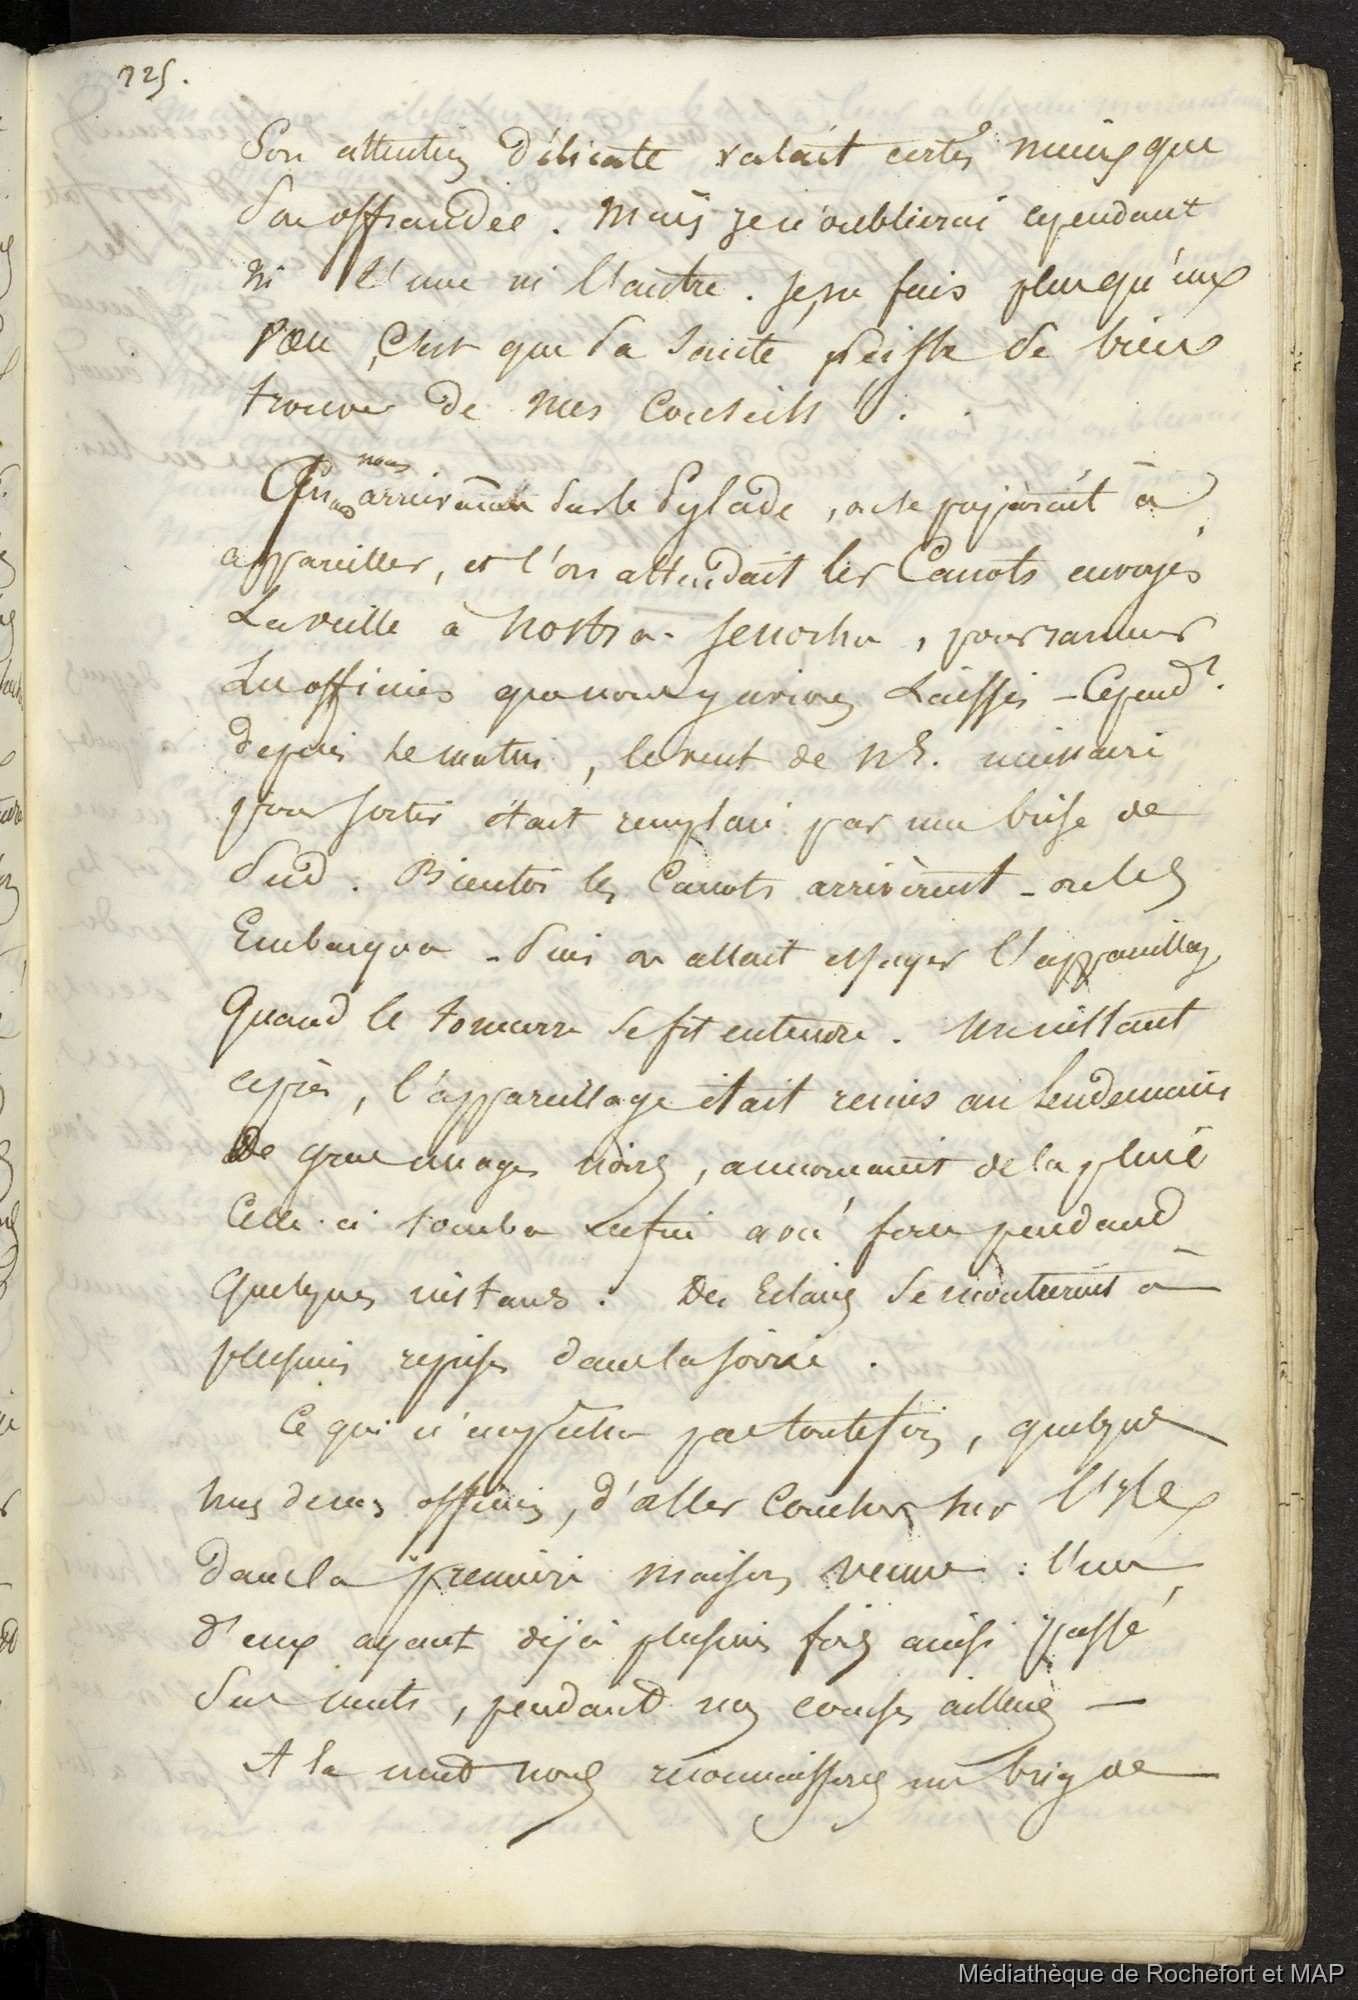 225.
Son attention délicate valait certes mieux que
son offrande. Mais je n'oublierai cependant
ni l'une ni l'autre. Je ne fais plus qu'un
vœu, C'est que sa santé puisse se bien
trouver de mes Conseils !..
nous
quand arrivames sur le Pylade, on se préparait à
appareiller, et l'on attendait les Canots envoyés
La veille à Nostra-Senora, pour ramener
Les officiers que nous y avions Laissés – Cepend.t
depuis le matin, le vent de NE. nécessaire
pour sortir était remplacé par une brise de
Sud. Bientôt les Canots arrivèrent – on les
Embarqua – Puis on allait essayer l'appareillage
Quand le tonnerre se fit entendre. Un instant
après, l'appareillage était remis au lendemain
De gros nuages noirs, annonçaient de la pluie
Celle-ci tomba enfin avec force pendand
Quelques instans. Des Eclairs se montrèrent à
plusieurs reprises dans la soirée.
Ce qui n'empêcha pas toutefois, quelques
uns de nos officiers, d'aller Coucher sur l'Isle
dans la première maison venue : l'un
d'eux ayant déjà plusieurs fois ainsi passé
Ses nuits, pendant nos courses ailleurs —
A la nuit nous reconnaissons un brig de
Médiathèque de Rochefort et MAP